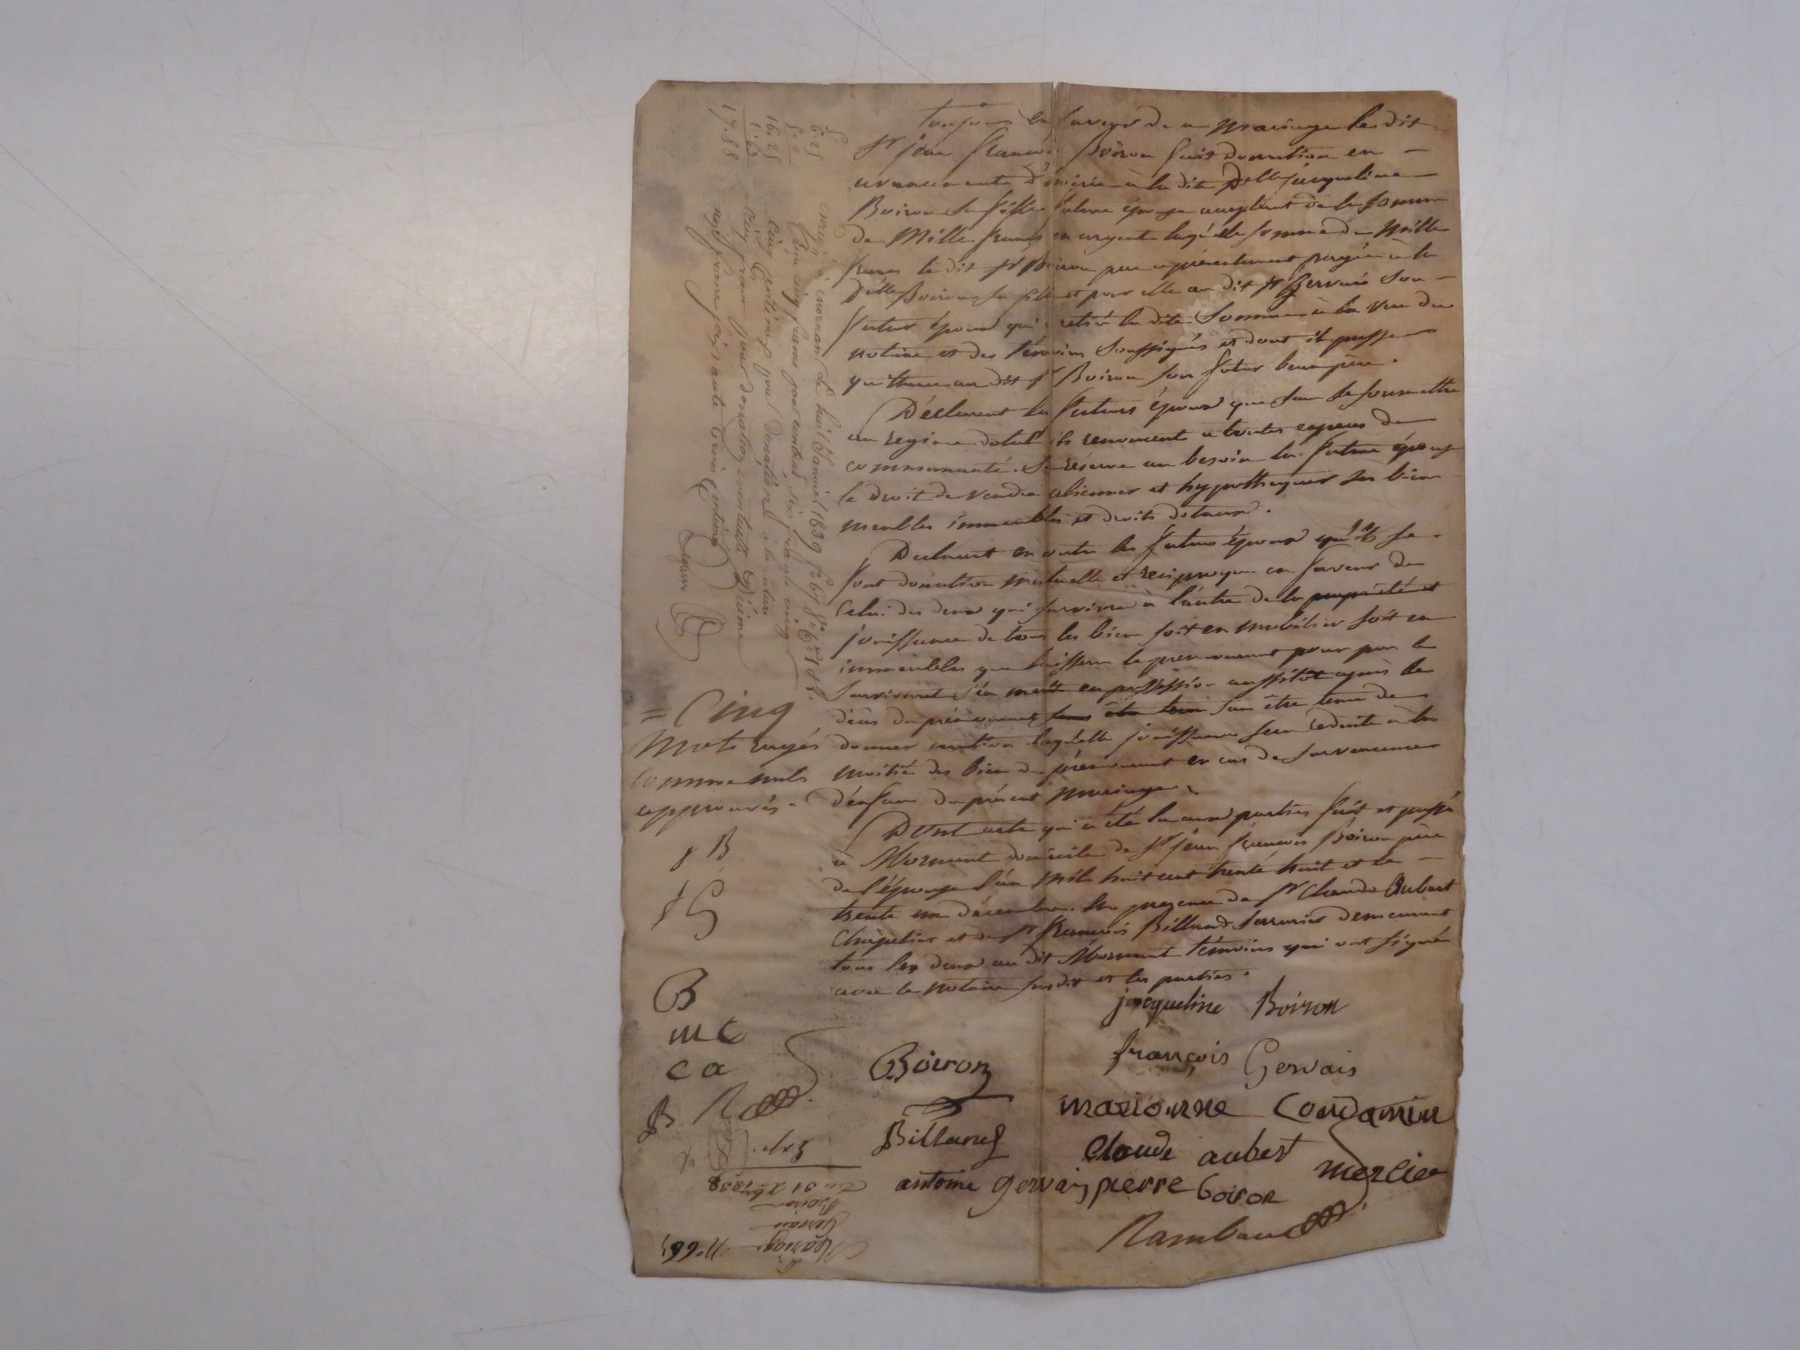 toujours en faveur de ce mariage le dit
Sr jean françois Boiron fait donation en
avancement d'hoirie à la dite Delle jacqueline
Boiron sa fille future épouse acceptant de la somme
de Mille francs en argent laquelle somme de Mille
francs le dit Sr Boiron père a présentement payée à la
Delle Boiron sa fille et pour elle au dit Sr Gervais son
futur époux qui a retiré la dite Somme à la vue du
notaire et des témoins Soussignés et dont il passe
quittance au dit Sr Boiron son futur beau père.
Déclarent les futurs époux que sans se soumettre
au regime dotal ils renoncent a toutes especes de
communauté. Se réserve au besoin la future épouse
le droit de vendre aliener et hypothequer ses biens
meubles immeubles et droits dotaux.
Declarent en outre les futurs époux qu'ils se
font donation mutuelle et reciproque en faveur de
celui des deux qui survivra à l'autre de la propriété et
jouissance de tous les biens soit en mobilier soit en
immeubles que laissera le prémourant pour par le
Survivant s'en mettre en possession aussitôt après le
décès du prémourant sans être tenu sans être tenu de
donner caution laquelle jouissance sera reduite à la
moitié des biens du prémourant en cas de survenance
d'enfans du présent mariage.
Dont acte qui a été lu aux parties fait et passé
à Mornant domicile de Sr jean françois Boiron père
de l'épouse l'an mil huit cent trente huit et le
trente un décembre. En presence de Sr Claude Aubert
Chapelier et de Sr françois Billand Serrurier demeurant
tous les deux au dit Mornant témoins qui ont signé
avec le notaire susdit et les parties.
= Cinq
Mots rayés
comme nuls
approuvés.
j B
f G
B
m C
c a
B R
jacqueline Boiron
Boiron françois Gervais
marionne Condamin
Billand Claude aubert mercier
antoine gervais pierre boiron
Rambaud
Enregistré à mornant le huit Janvier 1839 fo 67
cinq francs pour contrat
cinq francs pour donation éventuelle Décime
6.25
16.25
1.63
17.88
Du 31 Xbre 1838
Boiron
Gervais
Mariage